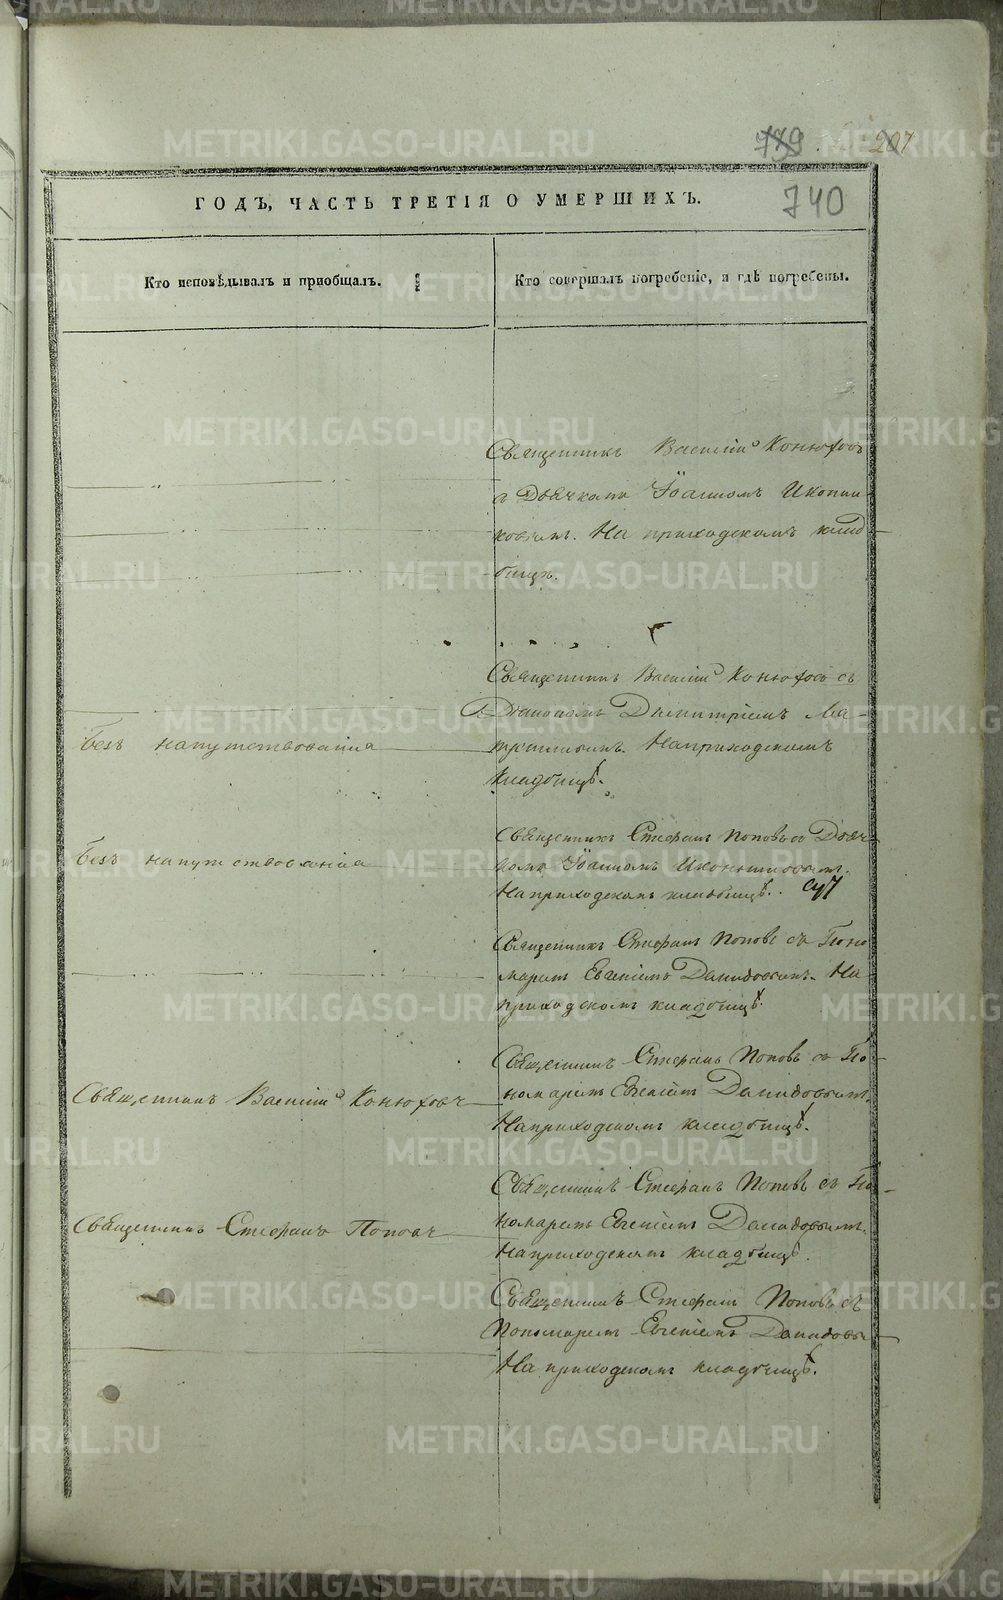 739 207
ГОДЪ, ЧАСТЬ ТРЕТІЯ О УМЕРШИХЪ. 740
Кто исповѣдывалъ и пріобщалъ.
Кто совершалъ погребеніе, и гдѣ погребены.
Священникъ Василій Конюховъ
с Дьячкомъ Іоанномъ Иконни-
ковымъ. На приходскомъ клад-
бищѣ.
Священникъ Василій Конюховъ съ
Діакономъ Димитріемъ
На приходскомъ
кладбищѣ.
Безъ напутствованія
Священникъ Стефанъ Поповъ съ Дьяч-
комъ Іоанномъ Иконниковымъ.
На приходскомъ кладбищѣ.
Безъ напутствованія
Священникъ Стефанъ Поповъ съ Поно-
маремъ Евгеніемъ Давидовымъ. На
приходскомъ кладбищѣ.
Священникъ Стефанъ Поповъ съ По-
номаремъ Евгеніемъ Давидовымъ.
На приходскомъ кладбищѣ.
Священникъ Василій Конюховъ
Священникъ Стефанъ Поповъ съ По-
номаремъ Евгеніемъ Давидовымъ.
На приходскомъ кладбищѣ.
Священникъ Стефанъ Поповъ
Священникъ Стефанъ Поповъ съ
Пономаремъ Евгеніемъ Давидовы
На приходскомъ кладбищѣ.
METRIKI.GASO-URAL.RU